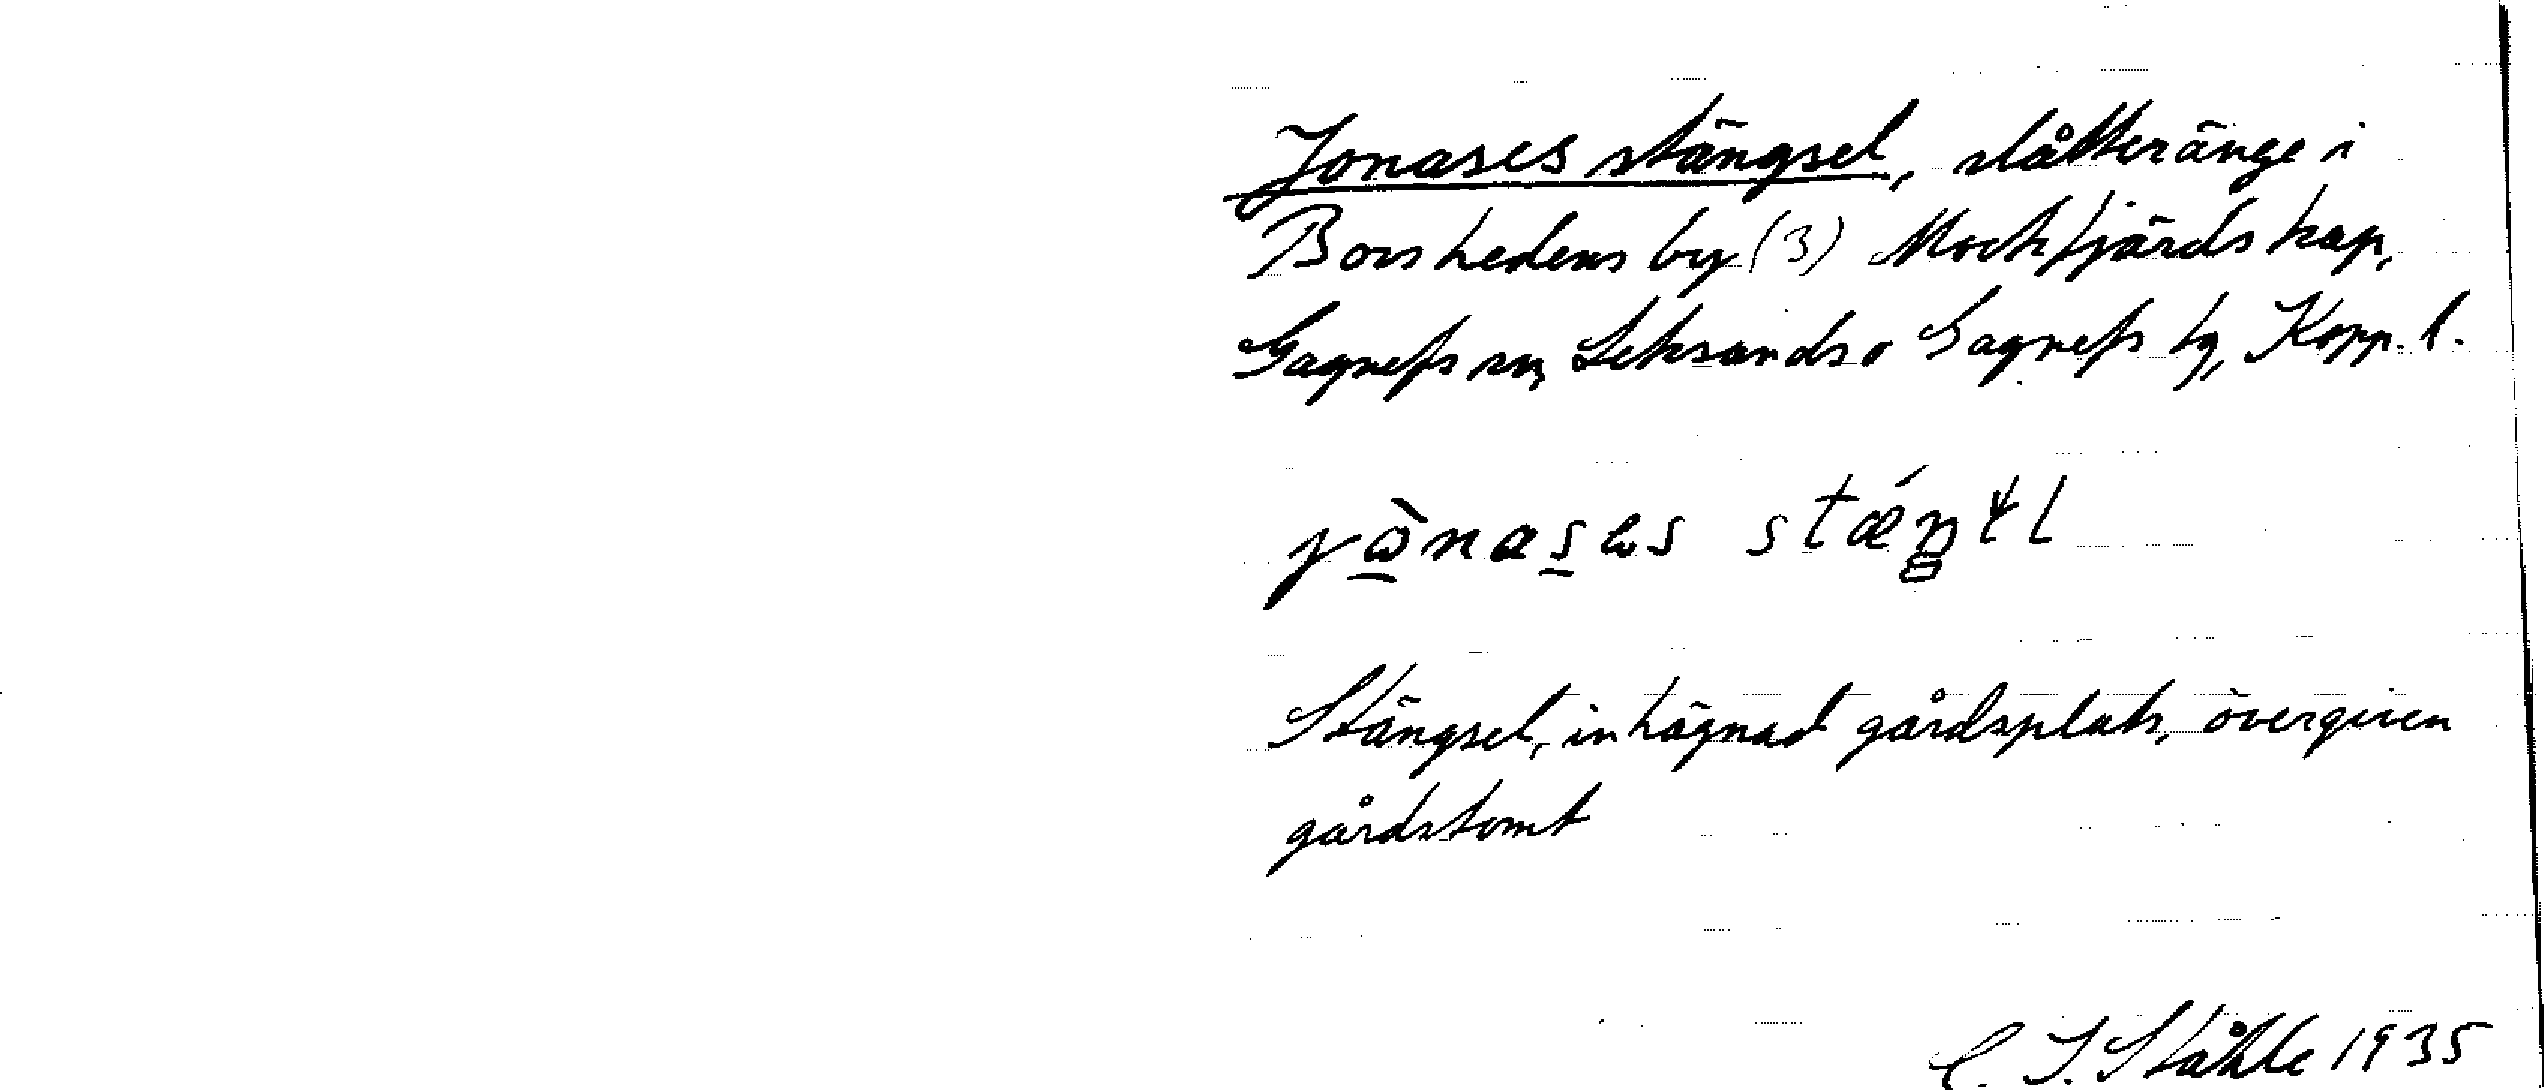 Jonases stängsel, slåtteränge i
Borshedens by (3) Mockfjärds kap,
Gagnefs sn, Leksands o Gagnefs tg, Kopp. l.
Stängsel, inhägnad gårdsplats, övergiven
gårdstomt
C. I. Ståhle 1935